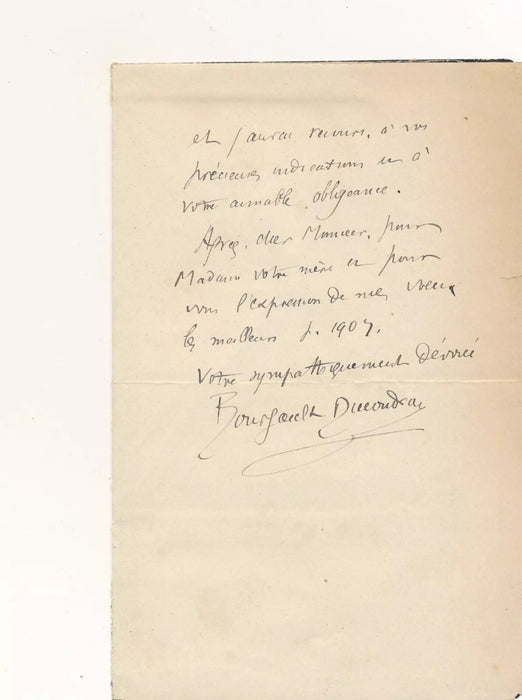 et j'aurai recours, à vos
précieuses indications et à
votre aimable obligeance.
Agréez, cher Monsieur, pour
Madame votre mère et pour
vous l'expression de mes voeux
les meilleurs p. 1907.
Votre sympathiquement dévoué
Bourgault Ducoudray